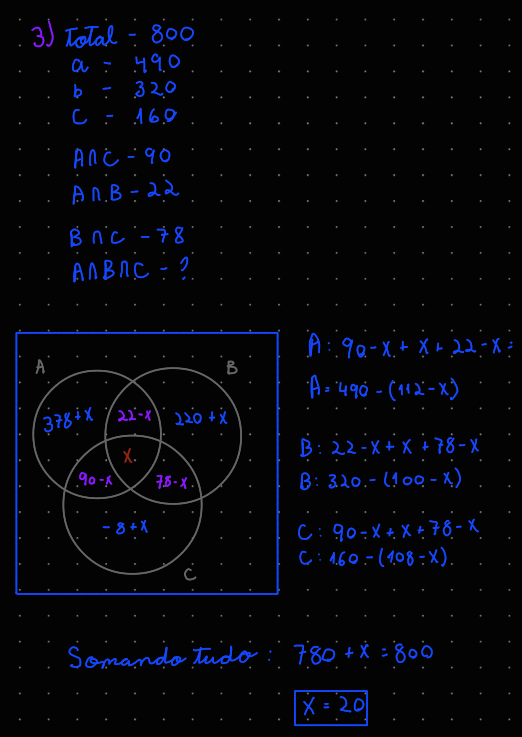 3) total - 800
a - 490
b - 320
C - 160
A∩C - 90
A∩B - 22
B∩C - 78
A∩B∩C - ?
A
B
378+x
22-x
220+x
x
90-x
78-x
-8+x
C
A: 90-x+x+22-x=
A= 490-(112-x)
B: 22-x+x+78-x
B: 320-(100-x)
C: 90-x+x+78-x
C: 160-(108-x)
Somando tudo: 780+x=800
x=20